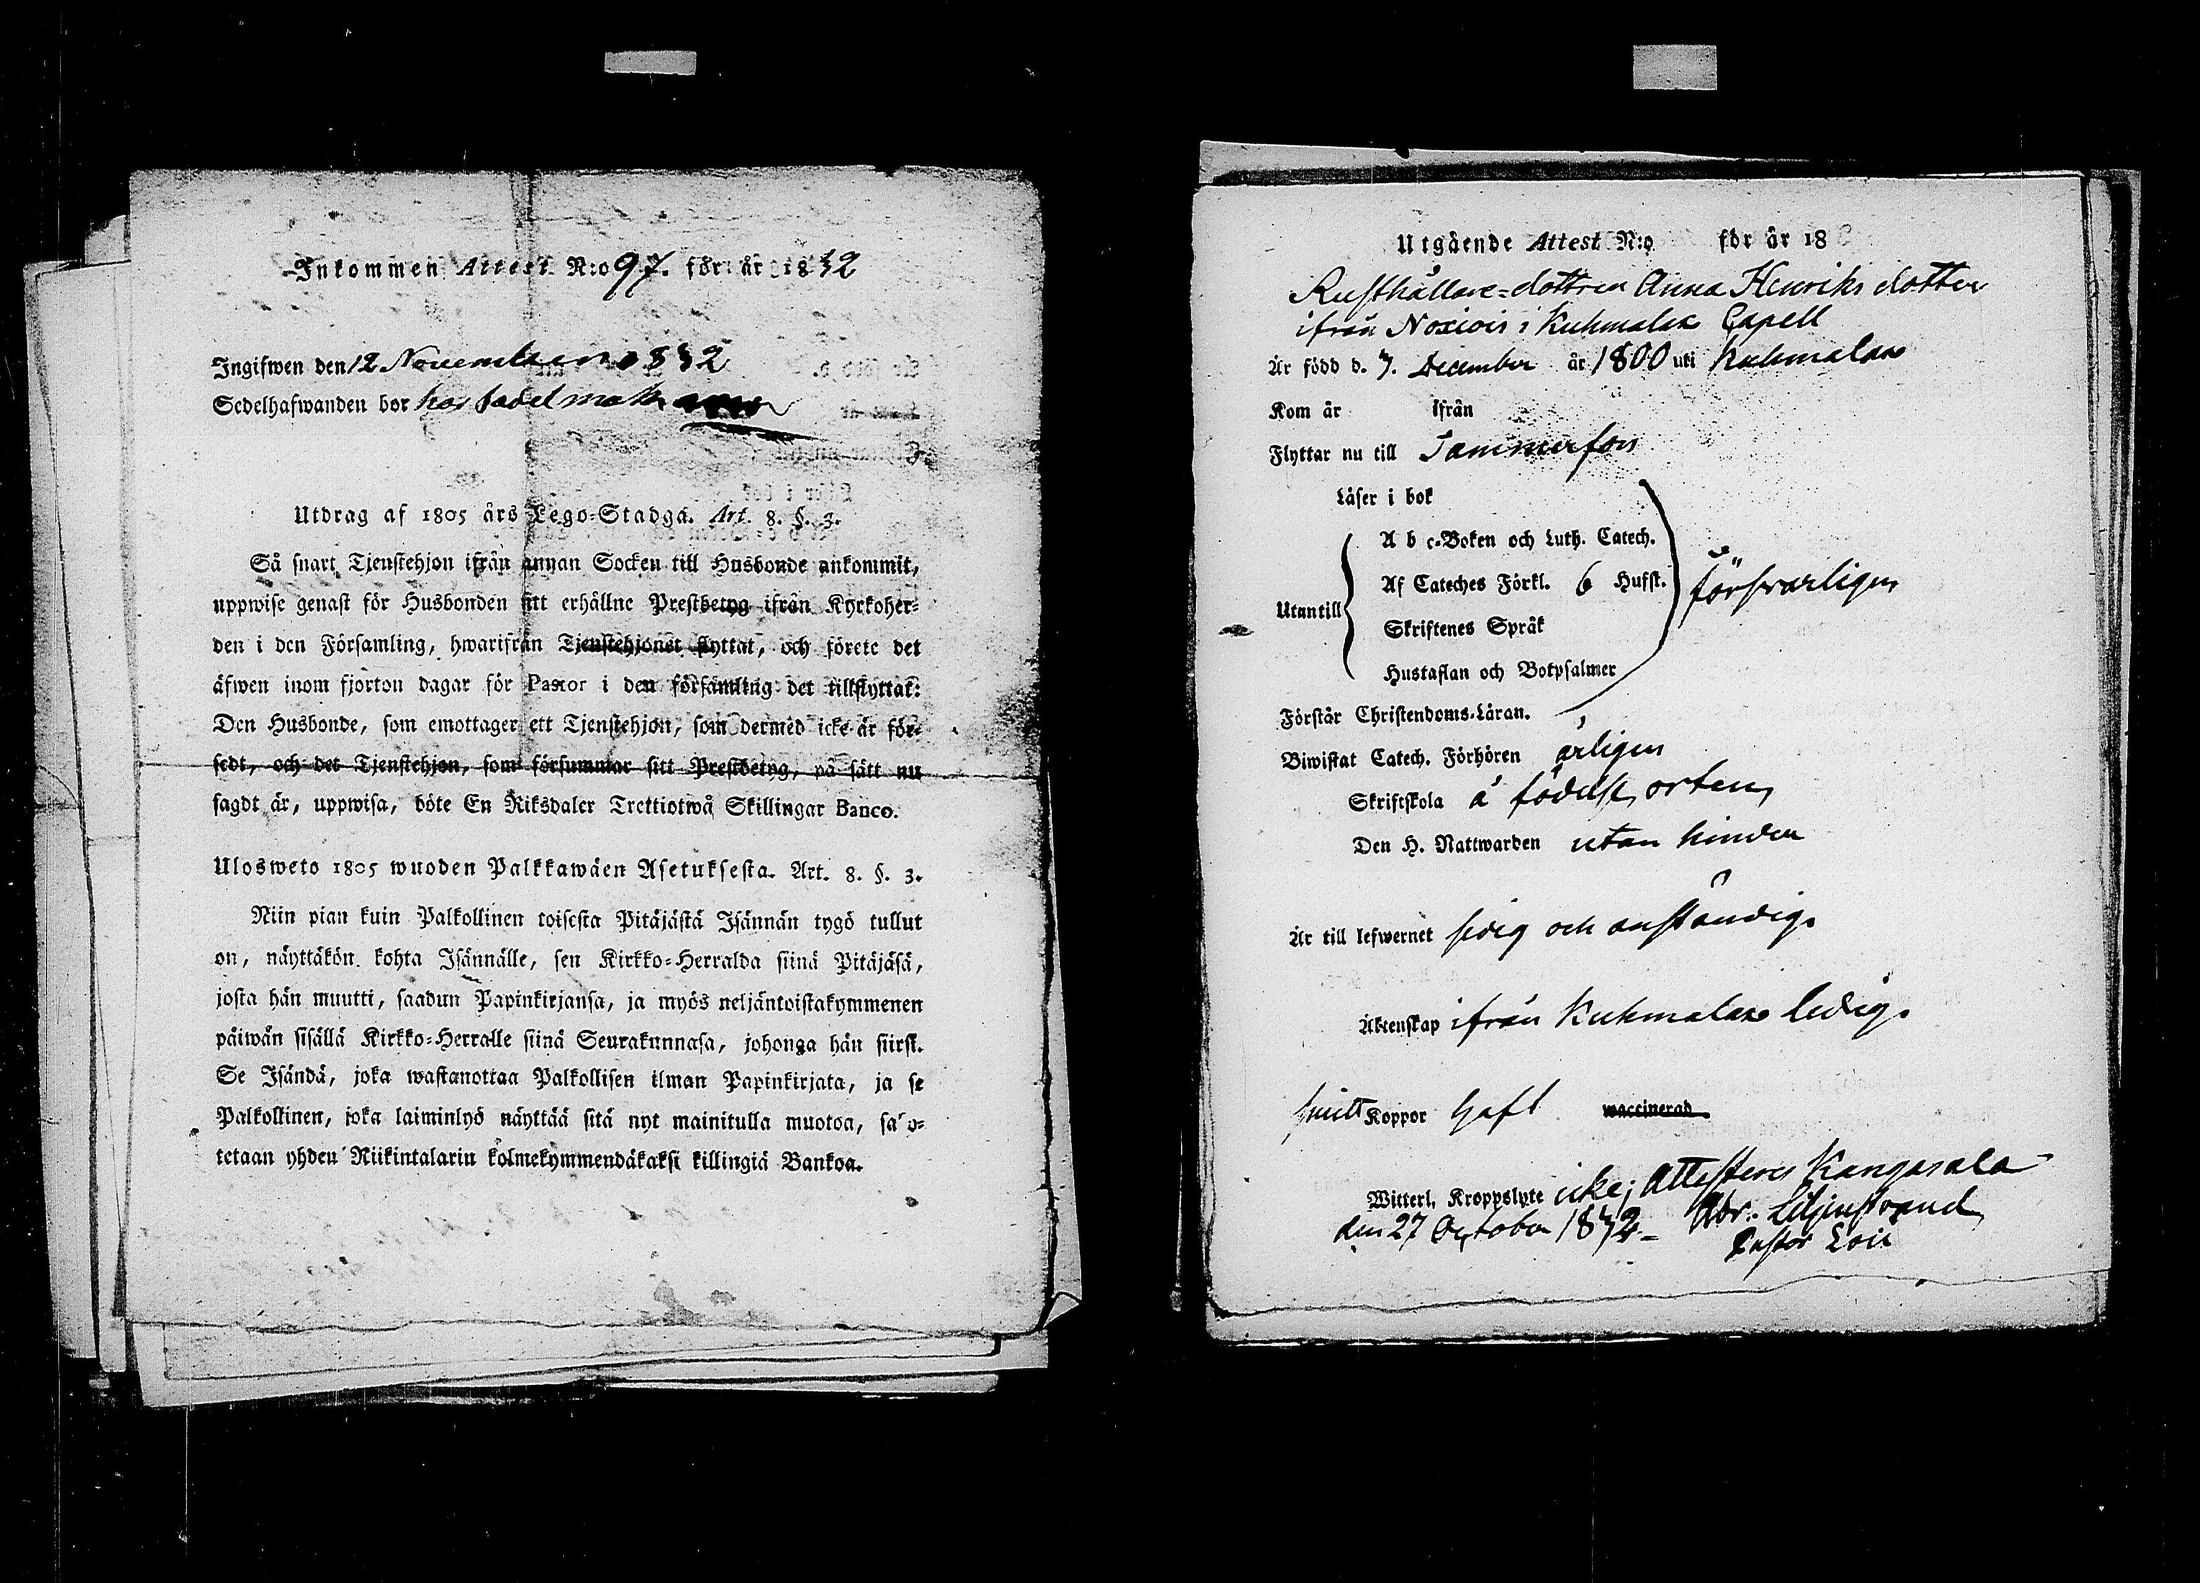 Inkommen Attest N:o 97. för år 1832
Ingifwen den 12 November 1832
Sedelhafwanden bor hos Sadelmak
Utdrag af 1805 års Lego-Stadga. Art. 8. §. 3.
Så snart Tjenstehjon ifrån annan Socken till Husbonde ankommit,
uppwise genast för Husbonden sitt erhållne Prestbetyg ifrån Kyrkoher-
den i den Församling, hwarifrån Tjenstehjonet flyttat, och förete det
äfwen inom fjorton dagar för Pastor i den församling det tillflyttat:
Den Husbonde, som emottager ett Tjenstehjon, som dermed icke är för-
sedt, och det Tjenstehjon, som försummar sitt Prestbetyg, på sätt nu
sagdt är, uppwisa, böte En Riksdaler Trettiotwå Skillingar Banco.
Ulosweto 1805 wuoden Palkkawäen Asetuksesta. Art. 8. §. 3.
Niin pian kuin Palkollinen toisesta Pitäjästä Isännän tygö tullut
on, näyttäkön kohta Isännälle, sen Kirkko-Herralda siinä Pitäjäsä,
josta hän muutti, saadun Papinkirjansa, ja myös neljäntoistakymmenen
päiwän sisällä Kirkko-Herralle siinä Seurakunnasa, johonga hän siirsi.
Se Isändä, joka wastanottaa Palkollisen ilman Papinkirjata, ja se
Palkollinen, joka laiminlyö näyttää sitä nyt mainitulla muotoa, sa o-
tetaan yhden Riikintalarin kolmekymmendäkaksi killingiä Bankoa.
Utgående Attest N:o för år 18
Rusthållare-dottren Anna Henriks dotter
ifrån i Kuhmalax Capell
Är född d. 7. December år 1800 uti Kuhmalax
Kom år ifrån
Flyttar nu till Tammerfors
Läser i bok
A b c-Boken och Luth. Catech.
Af Cateches Förkl. 6 Hufst.
Utantill
försvarligen
Skriftenes Språk
Hustaflan och Botpsalmer
Förstår Christendoms-Läran.
Biwistat Catech. Förhören årligen
Skriftskola å födelse orten,
Den H. Nattwarden utan hinder
Är till lefwernet sedig och anständig.
Äktenskap ifrån Kuhmalax ledig.
Koppor haft waccinerad.
Witterl. Kroppslyte icke; Attesteras Kangasala
den 27 October 1832 - Abr. Liljenstrand
Pastor Loci